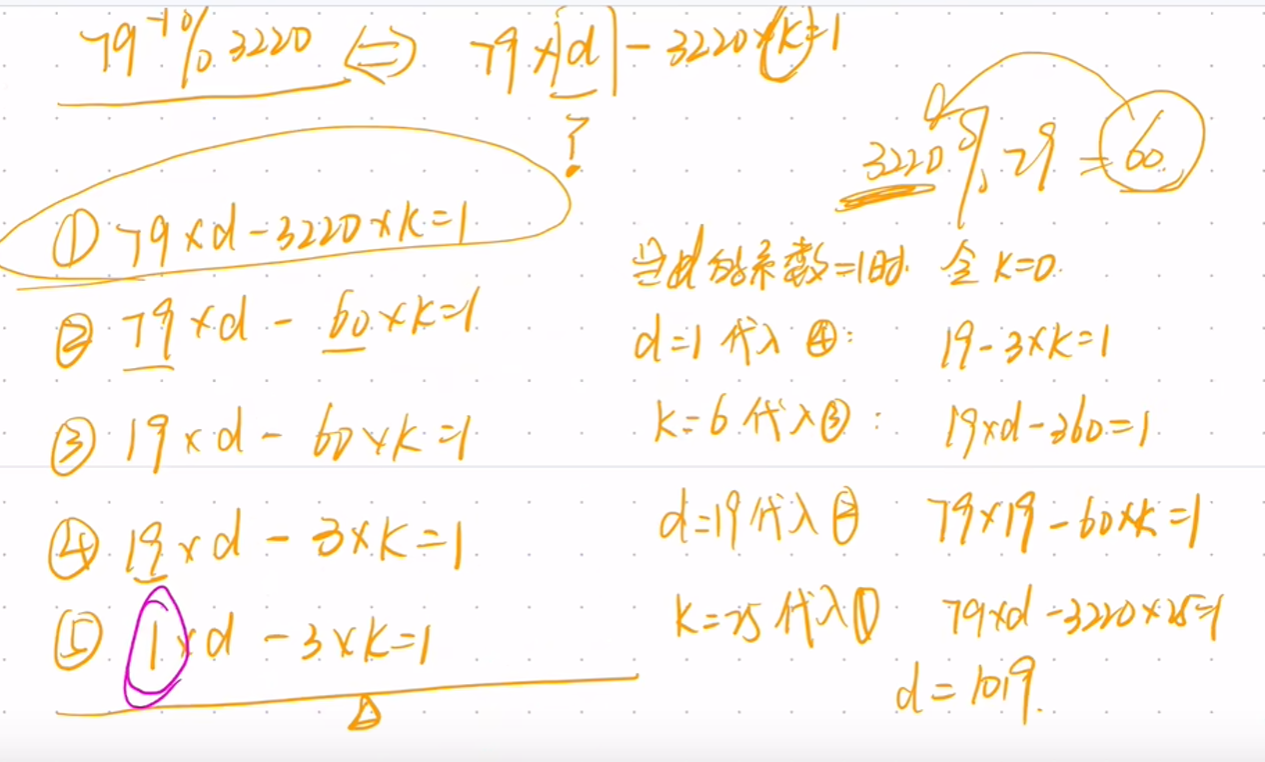 79⁻¹% 3220 ⇔ 79×d - 3220×k=1
?
3220 % 79 = 60
① 79×d-3220×k=1
② 79×d - 60×k=1
③ 19×d - 60×k=1
④ 19×d - 3×k=1
⑤ 1×d - 3×k=1
当d的系数=1时. 令 k=0.
d=1 代入 ④: 19-3×k=1
k=6 代入③: 19×d-360=1
d=19代入② 79×19-60×k=1
k=25代入① 79×d-3220×25=1
d=1019.